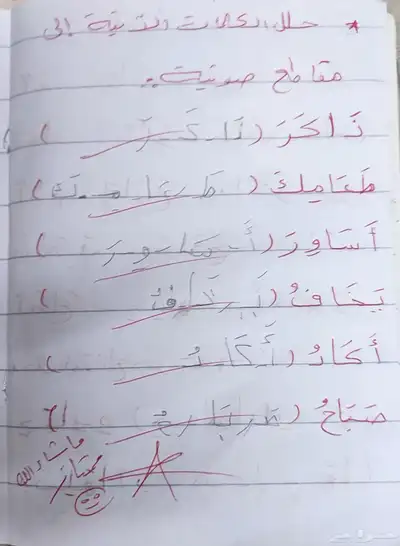 * حلل الكلمات الاتية إلى
مقاطع صوتية :-
ذَاكَرَ ( ذَا كَـ رَ )
طَعَامِكَ ( طَـ عَا مِـ كَ )
أَسَاوِرَ ( أَ سَا وِ رَ )
يَخَافُ ( يَـ خَا فُ )
أَكَادُ ( أَ كَا دُ )
صَبَاحُ ( صَـ بَا حُ )
ما شاء الله
ممتاز